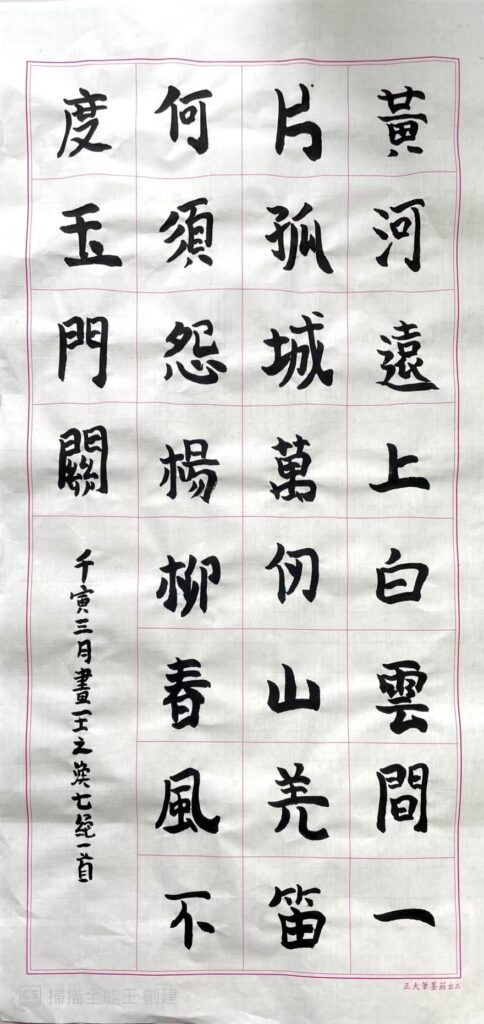 黃河遠上白雲間一
片孤城萬仞山羌笛
何須怨楊柳春風不
度玉門關
千寅三月晝王之渙七絕一首
正大筆墨莊出品
CS 掃描全能王 創建